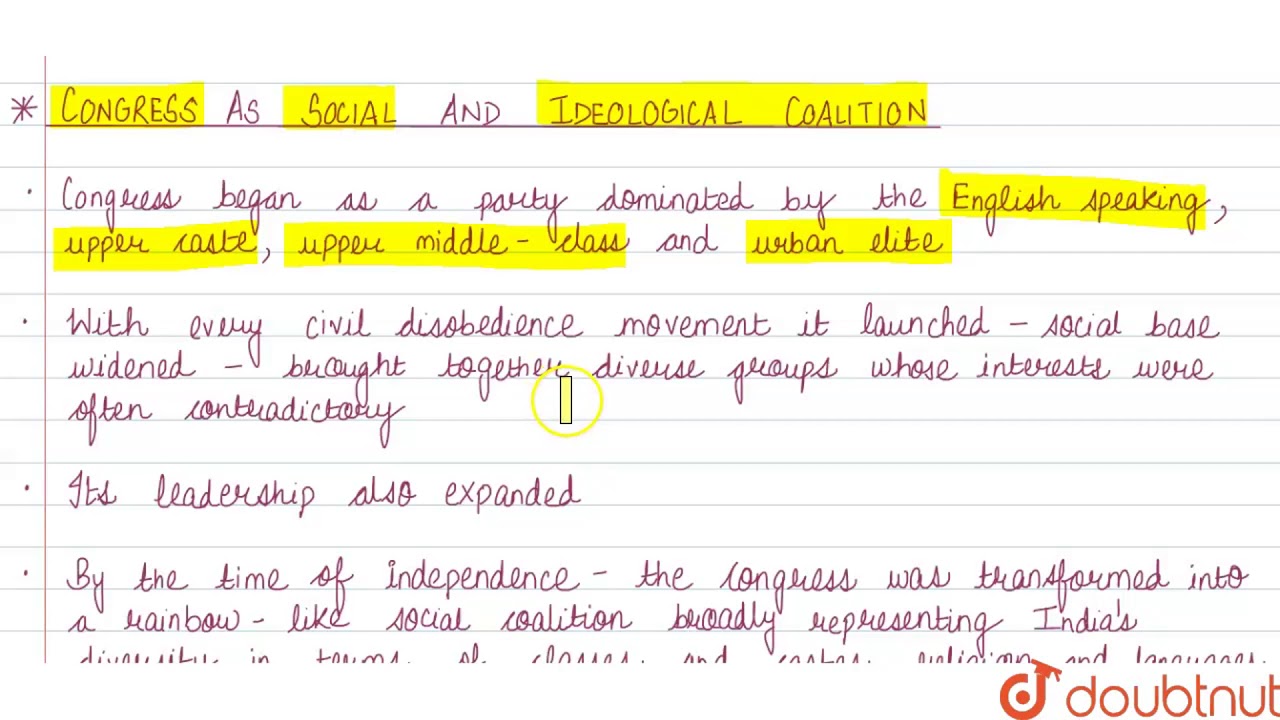 * CONGRESS AS SOCIAL AND IDEOLOGICAL COALITION
· Congress began as a party dominated by the English speaking,
upper caste, upper middle-class and urban elite
· With every civil disobedience movement it launched - social base
widened - brought together diverse groups whose interests were
often contradictory
· Its leadership also expanded
· By the time of independence - the congress was transformed into
a rainbow-like social coalition broadly representing India's
diversity in terms of classes and castes, religion and languages
doubtnut